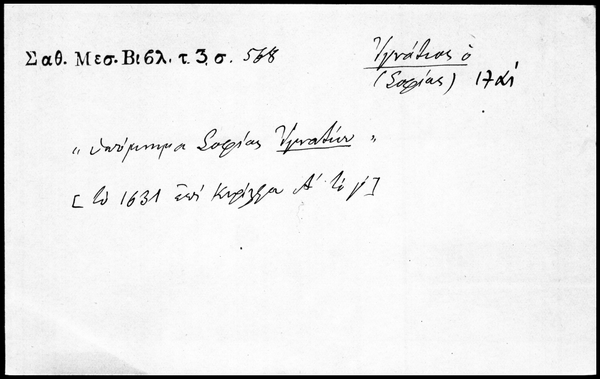 Σαθ. Μεσ. Βιβλ. τ. 3, σ. 568
Ἰγνάτιος ὁ
(Σοφίας) 17αί
"ὑπόμνημα Σοφίας Ἰγνατίου"
[τῷ 1631 ἐπί Κυρίλλου Α' τὸ γ']